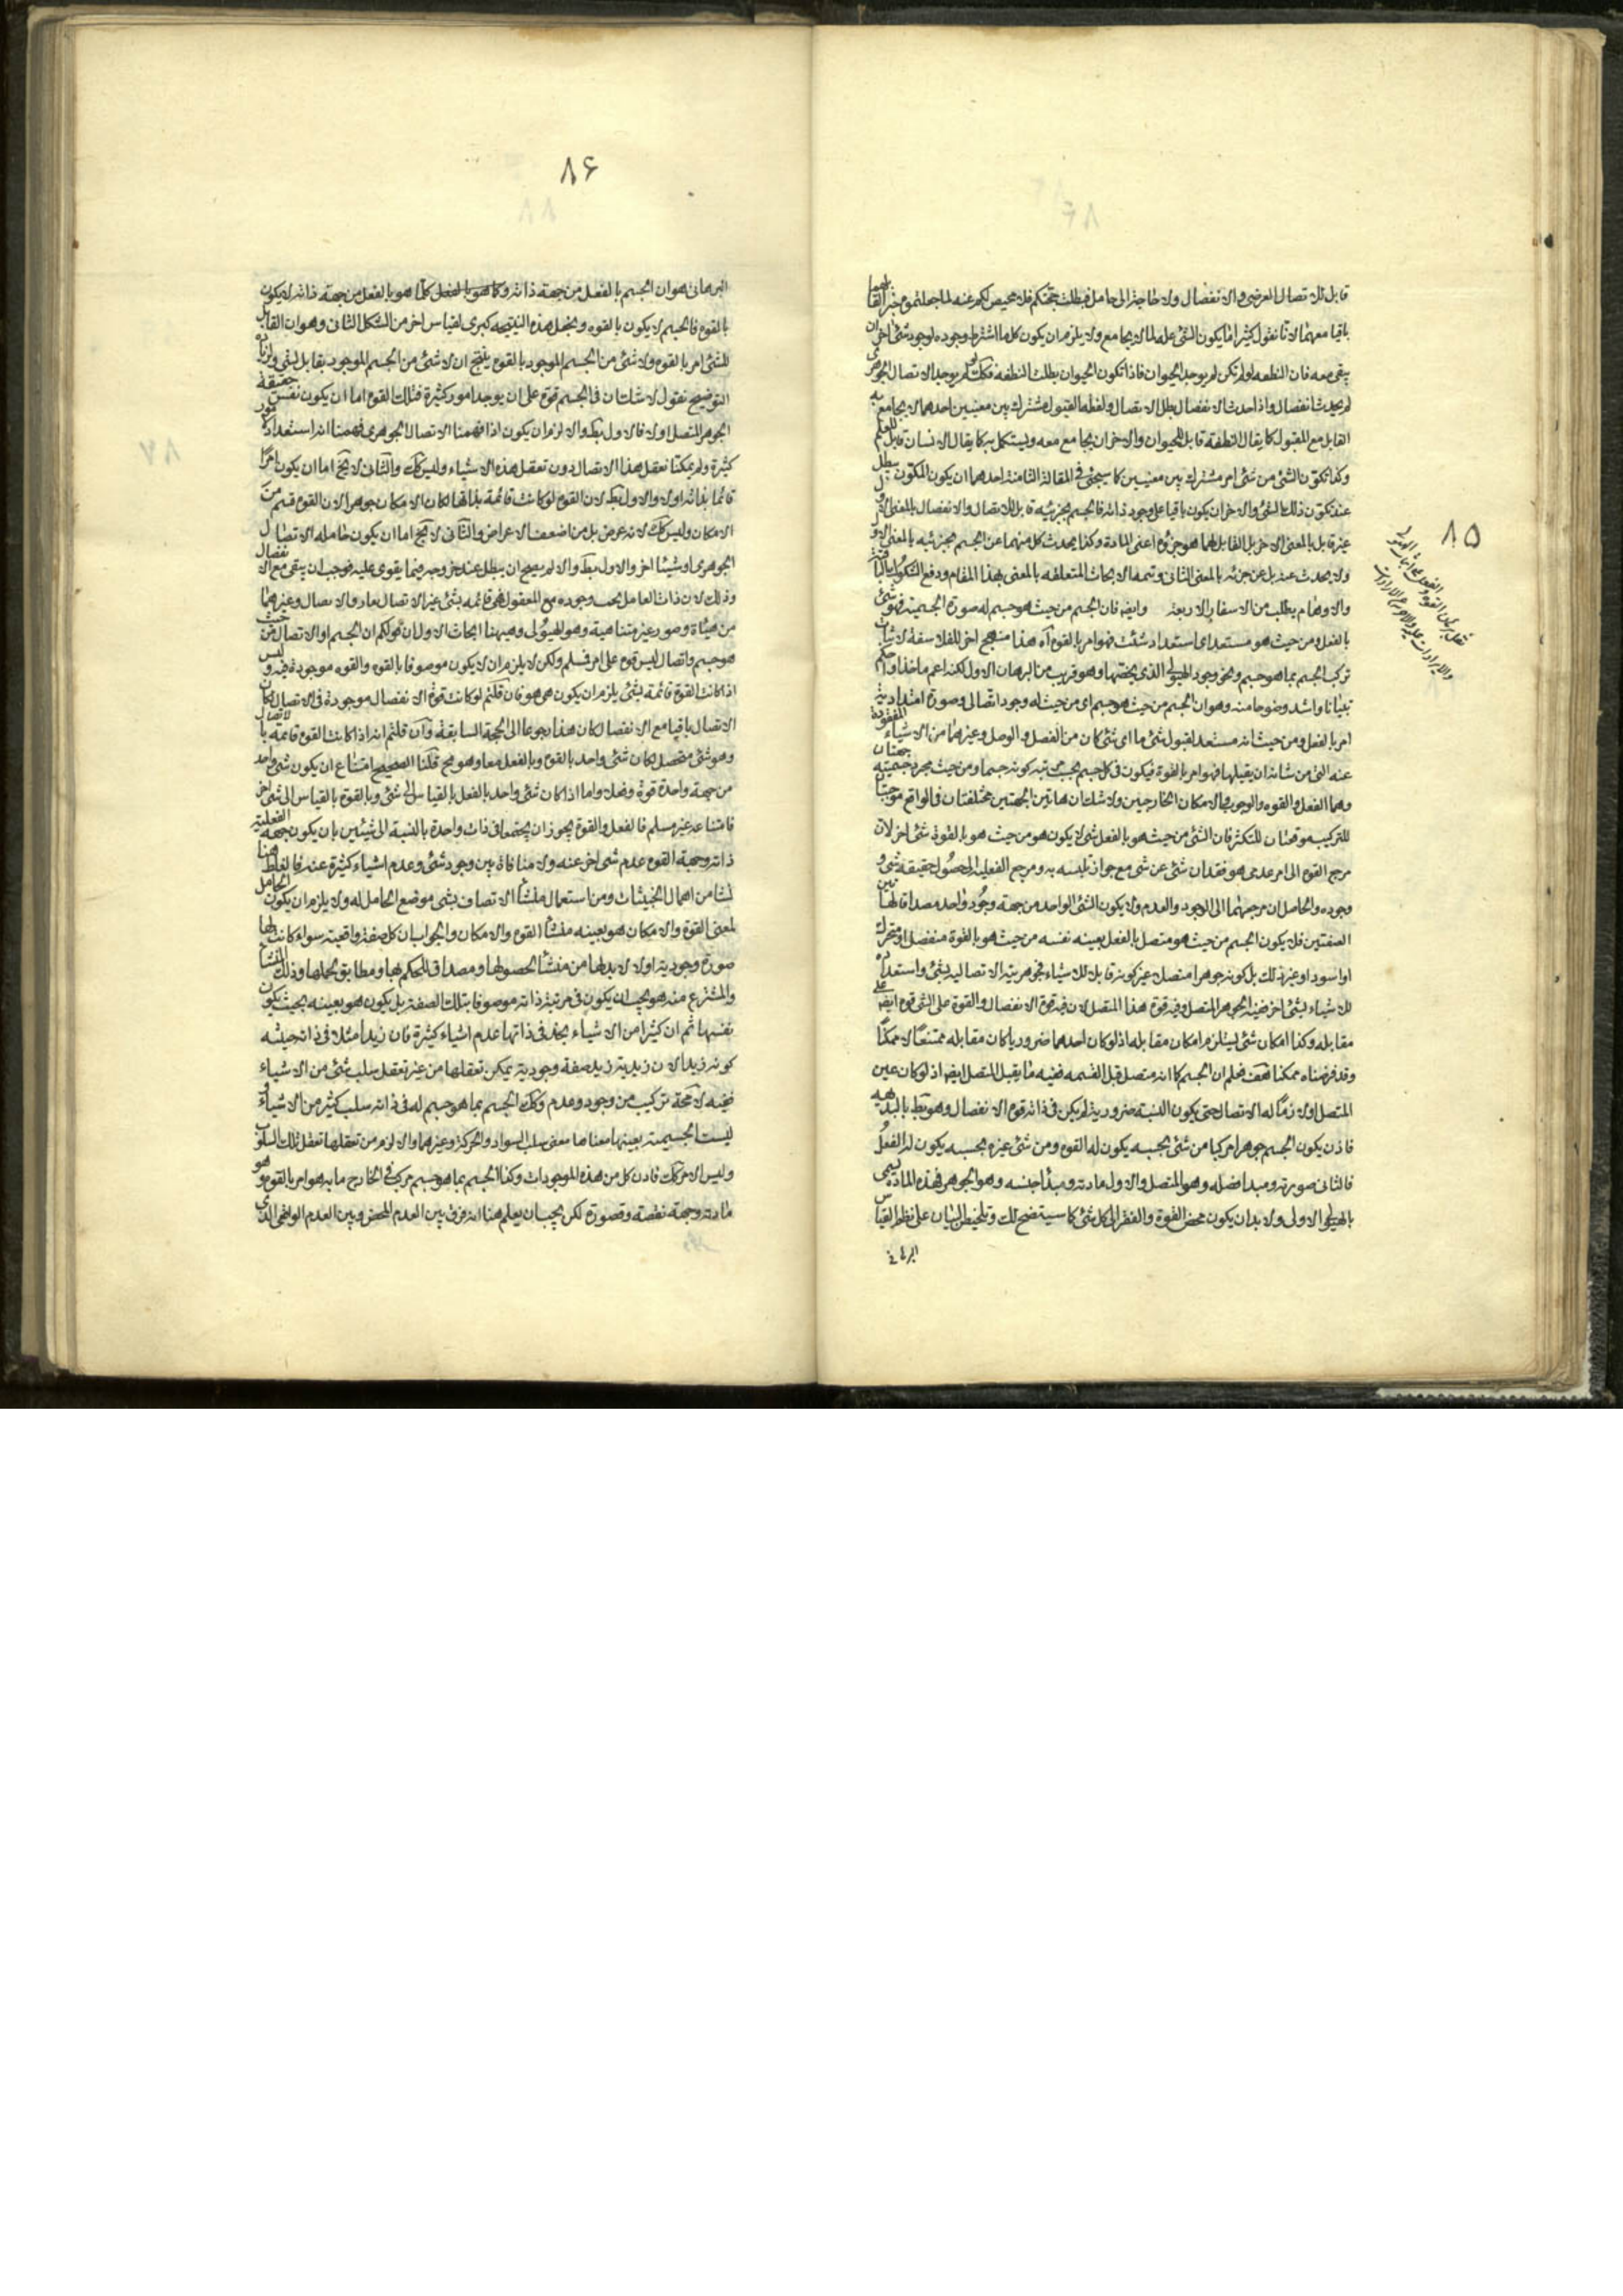 قابل للاتصال العرضى والانفصال ولا حاجة الى حامل فبطلت حجتكم فلا محيص لكم عنه لما جعلتموه القابل
باقيا معهما لانا نقول كثيرا ما يكون الشئ علة لما لا يجامع ولا يلزم ان يكون كل ما اشترط وجوده لوجود شئ اخر ان
يبقى معه فان النطفه لو لم تكن لم يوجد الحيوان فاذا تكون الحيوان بطلت النطفه فكك لو لم يوجد الاتصال الجوهرى
لم يحدث انفصال واذا حدث الانفصال بطل الاتصال ولفظه القبول مشترك بين معنيين احدهما لا يجامع به
القابل مع المقبول كما يقال النطفة قابل للحيوان والاخر ان يجامع معه ويستكمل به كما يقال الانسان قابل للعلم
وكذا تكون الشئ من شئ امر مشترك بين معنيين كما سيجئ فى المقالة الثامنة احدهما ان يكون المتكون يبطل
عند تكون ذلك الشئ والاخر ان يكون باقيا على وجود ذاته فالجسم بجزئيه قابل للاتصال والانفصال بالمعنى الاول
غير قابل بالمعنى الاخر بل القابل لهما هو جزؤه اعنى المادة وكذا يحدث كل منهما عن الجسم بجزئيه بالمعنى الاول
ولا يحدث عنه بل عن جزئه بالمعنى الثانى وتتمه الابحاث المتعلقه بالمعنى بهذا المقام ودفع الشكوك
والاوهام يطلب من الاسفار الاربعة وايضه فان الجسم من حيث هو جسم له صورة الجسمية فهو شئ
بالفعل ومن حيث هو مستعد اى استعداد شئت فهو امر بالقوه اه هذا منهج اخر للفلاسفة لاثبات
تركب الجسم بما هو جسم ونحو وجود الهيولى الذى يخصها وهو قريب من البرهان الاول لكنه اعم ماخذا واحكم
تبيانا واشد وضوحا منه وهو ان الجسم من حيث هو جسم اى من حيث له وجود اتصالى وصورة امتدادية
امر بالفعل ومن حيث انه مستعد لقبول شئ ما اى شئ كان من الفصل والوصل وغيرهما من الاشياء المفقودة
عنه التى من شانه ان يقبلها فهو امر بالقوة فيكون فى كل جسم بحسب مرتبه كونه جسما ومن حيث مجرد جسميته جهتان
وهما الفعل والقوه والوجوب والامكان الخارجيين ولا شك ان هاتين الجهتين مختلفتان فى الواقع موجبتا
للتركيب موقعتان للتكثر فان الشئ من حيث هو بالفعل شئ لا يكون هو من حيث هو بالقوة شئ اخر لان
مرجع القوه الى امر عدمى هو فقدان شئ عن شئ مع جواز تلبسه به ومرجع الفعلية الى حصول حقيقة شئ و
وجوده والحاصل ان مرجعهما الى الوجود والعدم ولا يكون الشئ الواحد من جهة وجود واحد مصداقا لهاتين
الصفتين فلا يكون الجسم من حيث هو متصل بالفعل بعينه نفسه من حيث هو بالقوة منفصل او متحرك
او اسود او غير ذلك بل كونه جوهرا متصلا غير كونه قابلا للاشياء فجوهريته الاتصاليه بشئ واستعداده
للاشياء بشئ اخر ففيه الجوهر المتصل وفيه قوة هذا المتصل لان فيه قوة الانفصال والقوة على الشئ قوه ايضه على
مقابله وكذا امكان شئ يستلزم امكان مقابله اذ لو كان احدهما ضروريا كان مقابله ممتنعا لا ممكنا
وقد فرضناه ممكنا هف فعلم ان الجسم كما انه متصل قبل القسمه ففيه ما يقبل المتصل ايضه اذ لو كان عين
المتصل او لازما له الاتصال حتى يكون النسبة ضرورية لم يكن فى ذاته قوه الانفصال وهو بط بالبديهيه
فاذن يكون الجسم جوهرا مركبا من شئ بحسبه يكون له القوه ومن شئ غيره بحسبه يكون له الفعل
فالثانى صورته ومبدا فصله وهو المتصل والاول مادته ومبدأ جنسه وهو الجوهر فهذه الماده يسمى
بالهيولى الاولى ولا بد ان يكون محض القوة والفقر الى كل شئ كما سيتضح لك وتلخيص البيان على نظم القياس
البرهانى
٨٥
٨۶
البرهانى هو ان الجسم بالفعل من جهة ذاته وكلما هو بالفعل من جهة ذاته لا يكون
بالقوه فالجسم لا يكون بالقوه ونجعل هذه النتيجه كبرى لقياس اخر من الشكل الثانى وهو ان القابل
للشئ امر بالقوه ولا شئ من الجسم الموجود بالقوه ينتج ان لا شئ من الجسم الموجود بقابل لشئ ولزيادة
التوضيح نقول لا شك ان فى الجسم قوة على ان يوجد امور كثيرة فتلك القوه اما ان يكون نفس حقيقة
الجوهر المتصل او لا فالاول بط والا لزم ان يكون اذا فهمنا الاتصال الجوهرى فهمنا انه استعداد لامور
كثيرة ولم يمكننا نعقل هذا الاتصال دون تعقل هذه الاشياء وليس كك والثانى لا يخ اما ان يكون امرا
قائما بذاته او لا والاول بط لان القوه لو كانت قائمة بذاتها لكان الامكان جوهرا لان القوه قسم من
الامكان وليس كك لانه عرض بل من اضعف الاعراض والثانى لا يخ اما ان يكون حامله الاتصال
الجوهرى او شيئا اخر والاول بط والا لم يصح ان يبطل عند خروجه فيما يقوى عليه فوجب ان يبقى مع الانفصال
وذلك لان ذات الحامل يجب وجوده مع المقبول فهى قائمه بشئ غير الاتصال عار والاتصال وغيرهما
من هيئات وصور غير متناهية وهو الهيولى وههنا ابحاث الاول ان قولكم ان الجسم او الاتصال من حيث
هو جسم واتصال ليس قوه على امر فسلم ولكن لا يلزم ان لا يكون موصوفا بالقوه والقوه موجودة فيه وليس
اذا كانت القوة قائمة بشئ يلزم ان يكون هى هو فان قلتم لو كانت قوة الانفصال موجودة فى الاتصال لكان
الاتصال باقيا مع الانفصال لكان هذا رجوعا الى الحجة السابقة وان قلتم انه اذا كانت القوه قائمة بالاتصال
وهو شئ متصل لكان شئ واحد بالقوه وبالفعل معا وهو مح قلنا الصحيح امتناع ان يكون شئ واحد
من جهة واحدة قوة وفعلا واما اذا كان شئ واحد بالفعل بالقياس الى شئ وبالقوه بالقياس الى شئ اخر
فامتناعه غير مسلم فالفعل والقوة يجوز ان يجتمعا فى ذات واحدة بالنسبة الى شيئين بان يكون جهة الفعلية
ذاته وجهة القوه عدم شئ اخر عنه ولا منافاة بين وجود شئ وعدم اشياء كثيرة عنه فالغلط ههنا
نشا من اهمال الحيثيات ومن استعمال منشأ الاتصاف بشئ موضع الحامل له ولا يلزم ان يكون الحامل
لمعنى القوة والامكان هو بعينه منشأ القوه والامكان والجواب ان كل صفة واقعية سواء كانت لها
صورة وجودية او لا لا بد لها من منشأ لحصولها ومصداق للحكم بها ومطابق لحملها وذلك المنشا
والمنتزع منه هو يجب ان يكون فى مرتبة ذاته موصوفا بتلك الصفة بل يكون هو بعينه بحيث يكون
نفسها ثم ان كثيرا من الاشياء يجعل فى ذاتها عدم اشياء كثيرة فان زيدا مثلا فى ذاته حيثيه
كونه زيدا لان زيدية زيد صفة وجودية يمكن تعقلها من غير تعقل سلب شئ من الاشياء
ففيه لا محة تركيب من وجود وعدم وكك الجسم بما هو جسم له فى ذاته سلب كثير من الاشياء و
ليست الجسمية بعينها معناها معنى سلب السواد والحركة وغيرهما والا لزم من تعقلها تعقل تلك السلوب
وليس الامر كك فاذن كل من هذه الموجودات وكذا الجسم بما هو جسم مركب فى الخارج ما به هو امر بالقوه وهو
مادته وجهة نقصه وقصوره لكن يجب ان يعلم ههنا انه فرق بين العدم المحض وبين العدم الواقعى الذى